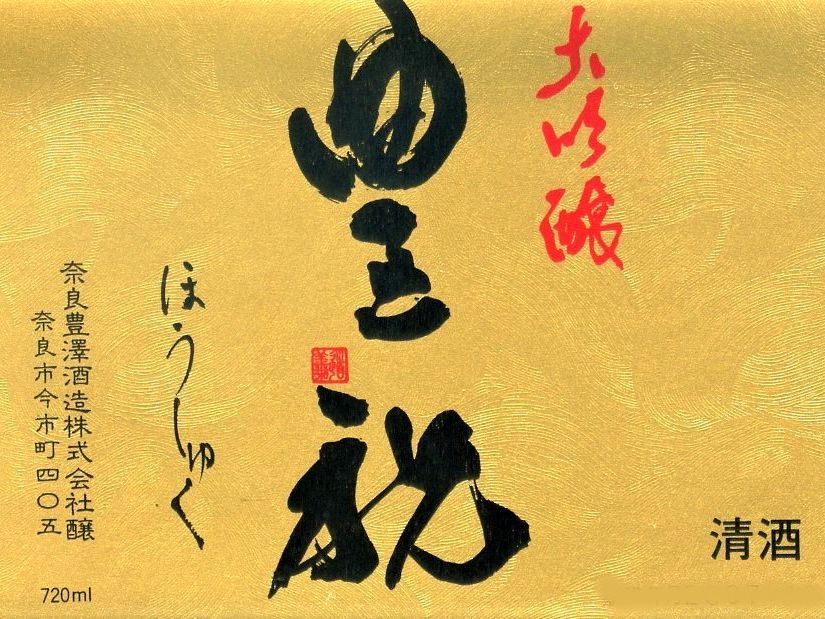 大吟醸
豊祝
ほうしゅく
奈良豊澤酒造株式会社醸
奈良市今市町四〇五
720ml
清酒